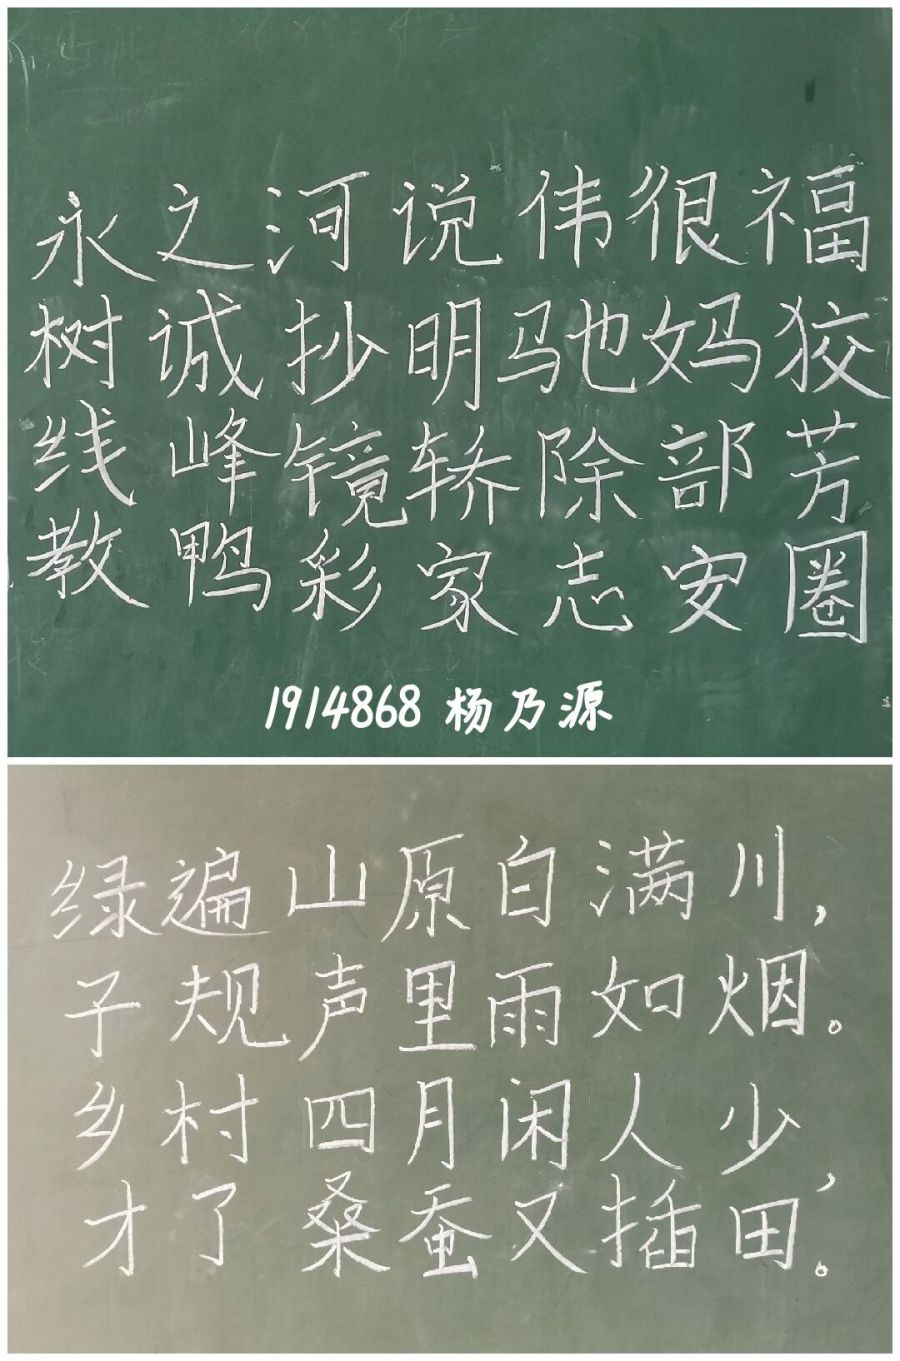 永之河说伟很福
树诚抄明驰妈狡
线峰镜轿除部芳
教鸭彩家志安圈
1914868 杨乃源
绿遍山原白满川，
子规声里雨如烟。
乡村四月闲人少，
才了桑蚕又插田。